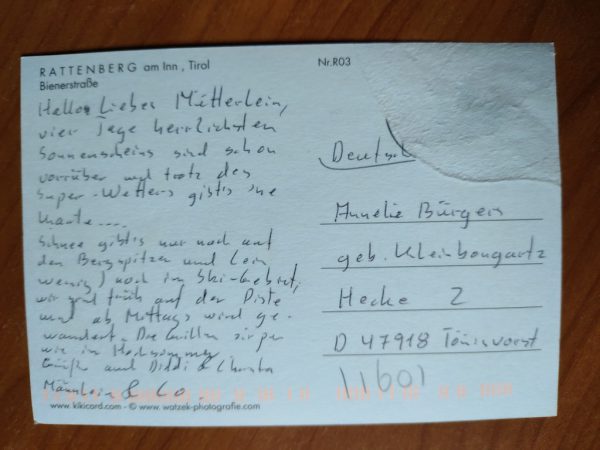 RATTENBERG am Inn, Tirol
Bienerstraße
Nr.R03
Hallo Liebes Mütterlein,
vier Tage herrlichsten
Sonnenscheins sind schon
vorrüber und trotz des
Super-Wetters gibt's ne
Karte....
Schnee gibt's nur noch auf
den Bergspitzen und (ein
wenig) noch im Ski-Gebiet,
wir sind früh auf der Piste
und ab Mittags wird ge-
wandert. Die Grillen zirpen
wie im Hochsommer
Grüße auch Diddi &
Männlein & Co
www.kikicard.com - © www.watzek-photografie.com
Deutsch
Annelie Bürgers
geb. Kleinbongartz
Hecke 2
D 47918 Tönisvorst
11601